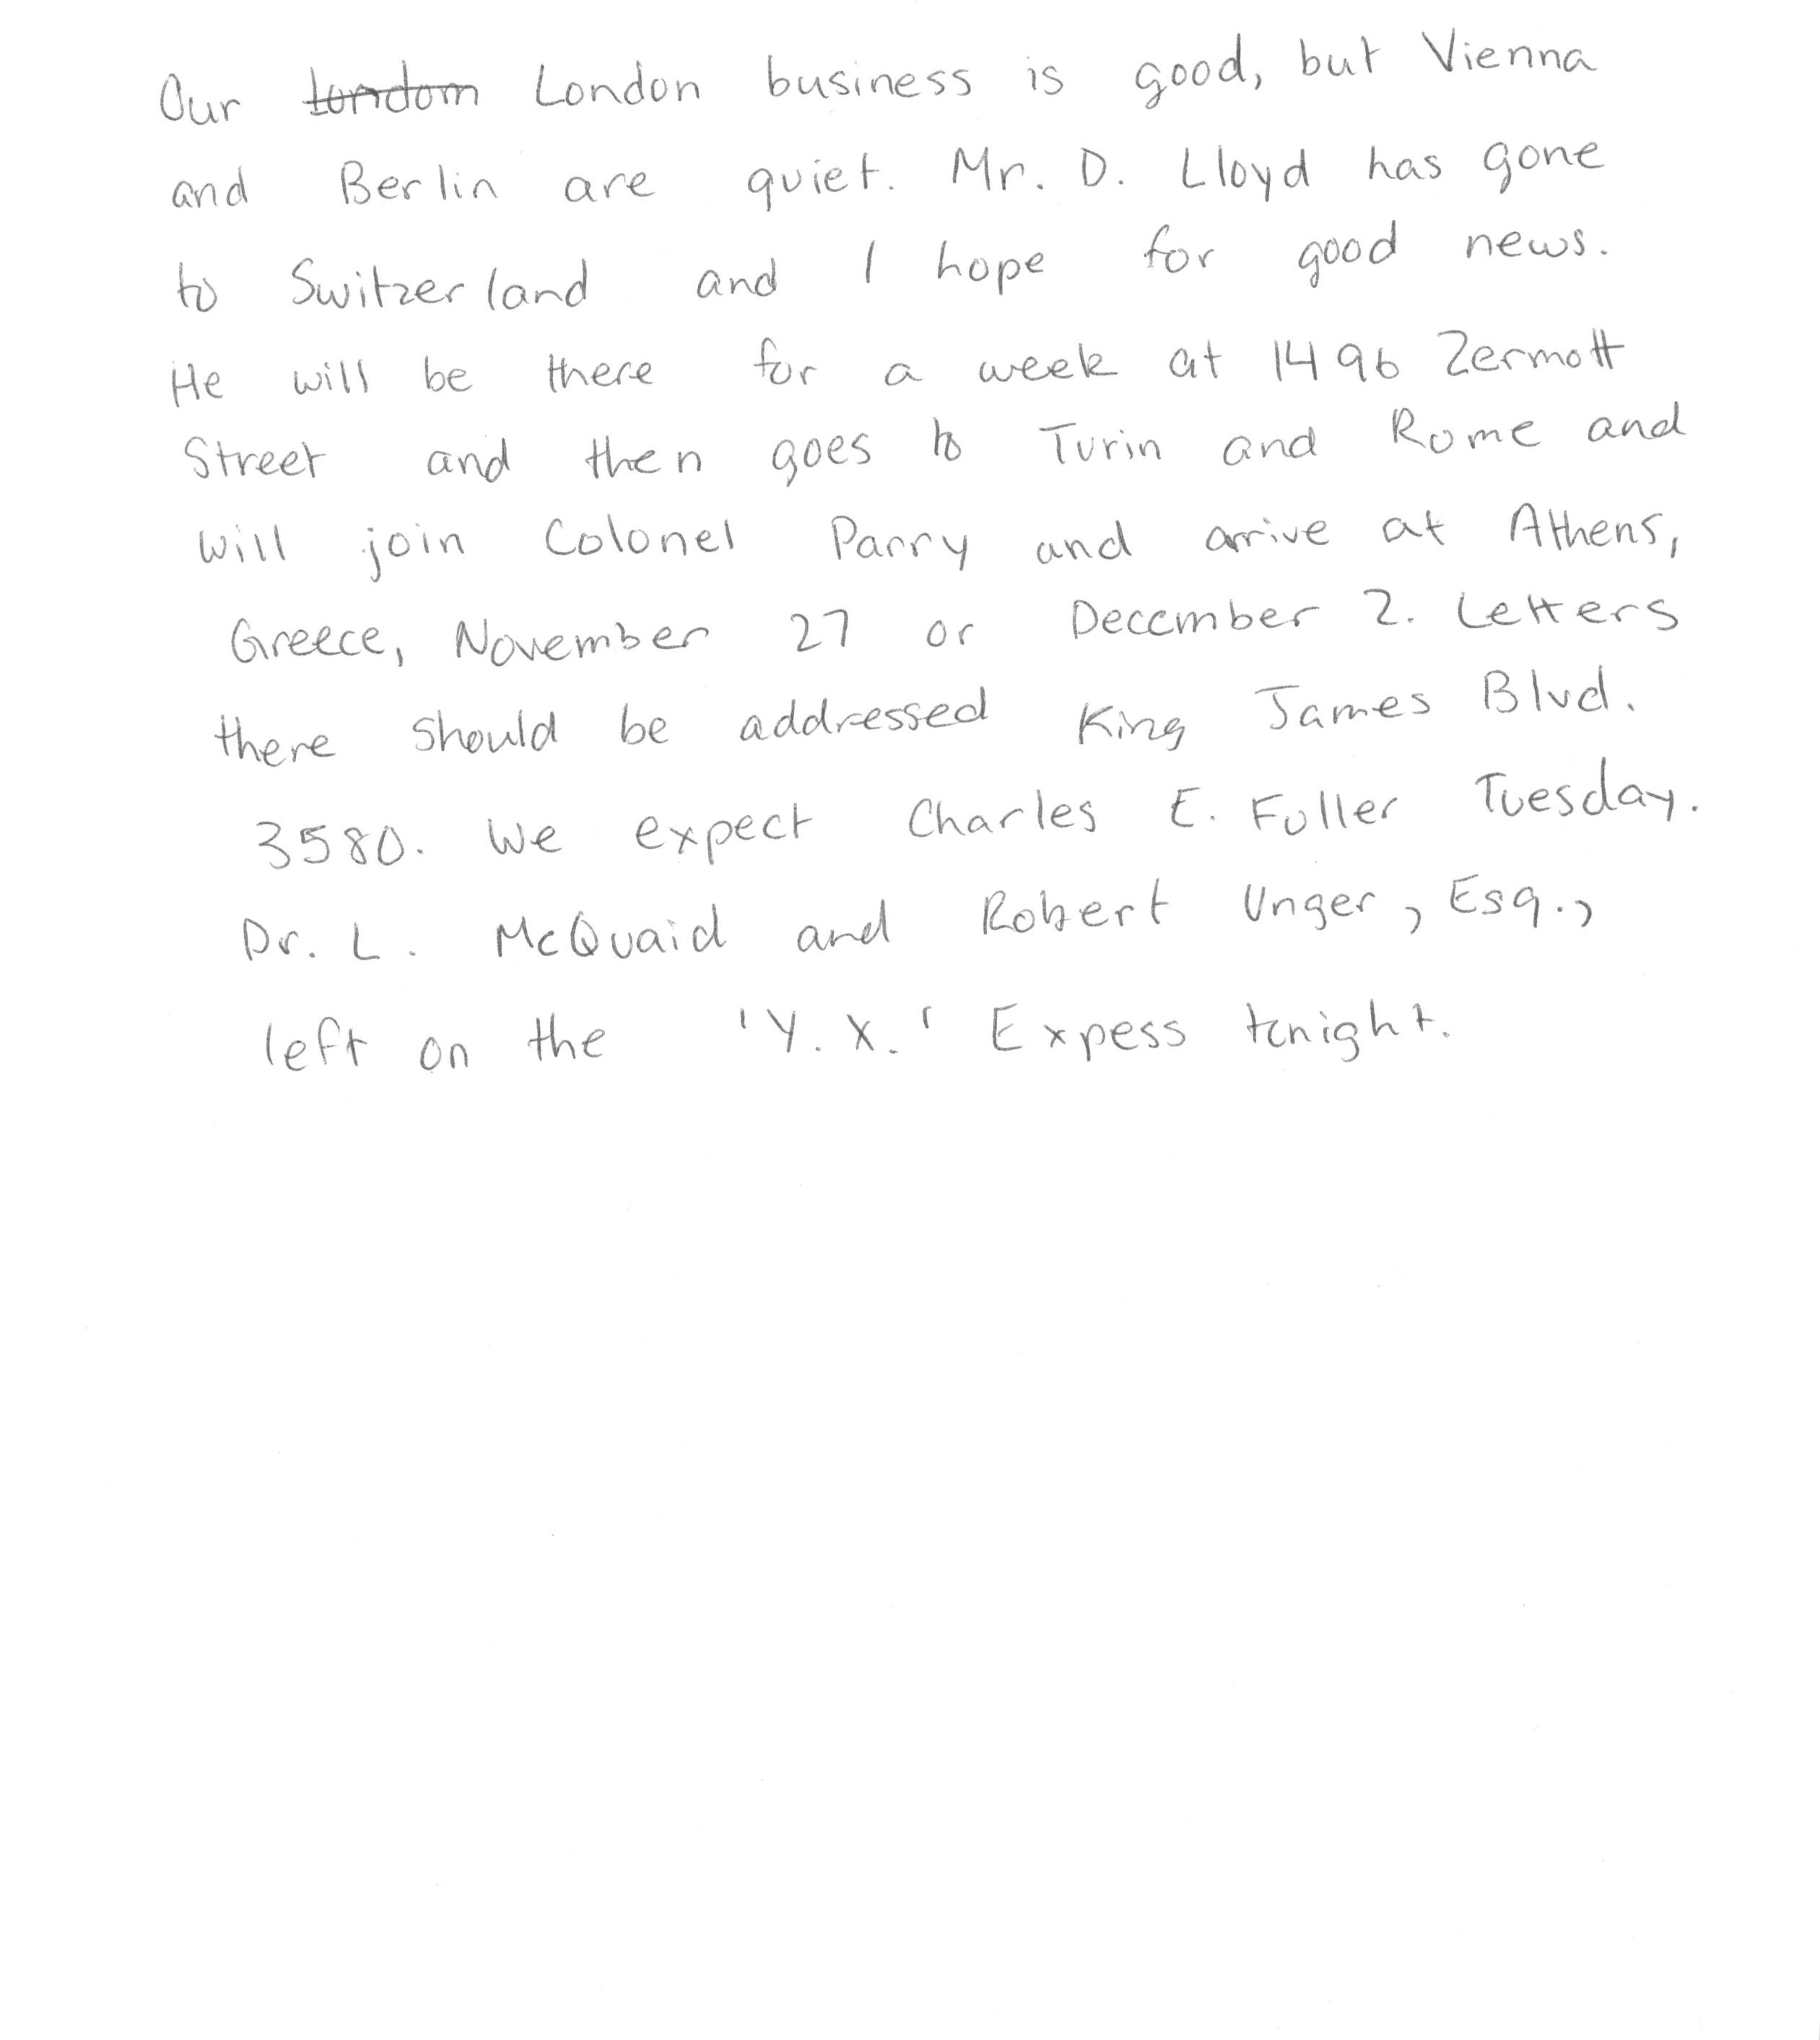 Our londom London business is good, but Vienna
and Berlin are quiet. Mr. D. Lloyd has gone
to Switzerland and I hope for good news.
He will be there for a week at 1496 Zermott
Street and then goes to Turin and Rome and
will join Colonel Parry and arrive at Athens,
Greece, November 27 or December 2. Letters
there should be addressed King James Blvd.
3580. We expect Charles E. Fuller Tuesday.
Dr. L. McQuaid and Robert Unger, Esq.,
left on the 'Y. X.' Expess tonight.